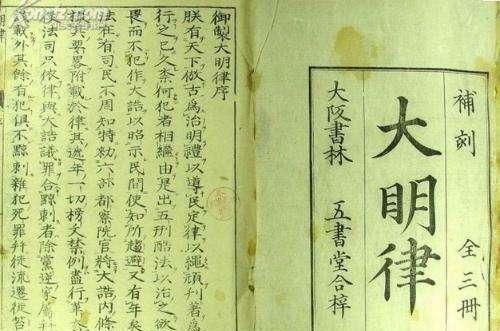 補刻 全三冊
大明律
大阪書林 五書堂合梓
御製大明律序
朕有天下倣古爲治明禮以導民定律以繩頑刊著爲
行之已久柰何犯者相繼由是出五刑酷法以治之欲
畏而不犯作大誥以昭示民間使知所趨避又有年矣
法在有司民不周知特敕六部都察院官將大誥内條
撮其要畧附載於律其遞年一切榜文禁例盡行革
法司只依律與大誥議罪合黥刺者除黨逆家屬
載外其餘有犯俱不黥刺雜犯死罪幷徒流遷徙笞